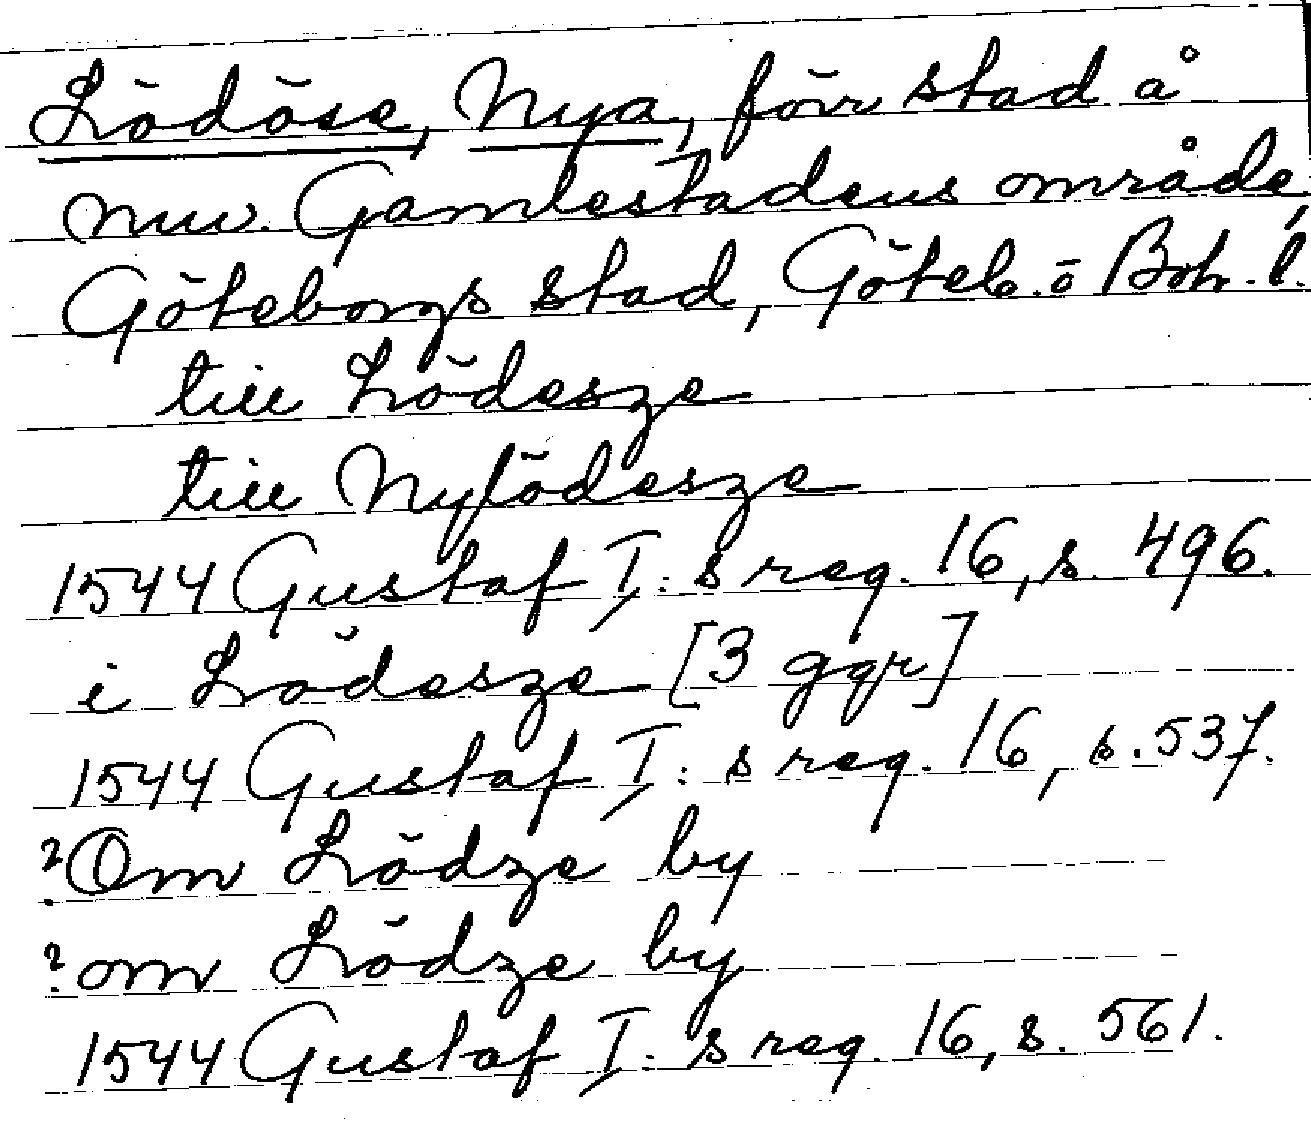 Lödöse, Nya, förr stad å
nuv. Gamlestadens område,
Göteborgs stad, Göteb. o Boh. l.
till Lödesze
till Nylödesze
1544 Gustaf I:s reg. 16, s. 496.
i Lödesze [3 ggr]
1544 Gustaf I:s reg. 16, s. 537.
? Om Lödze by
? om Lödze by
1544 Gustaf I:s reg. 16, s. 561.